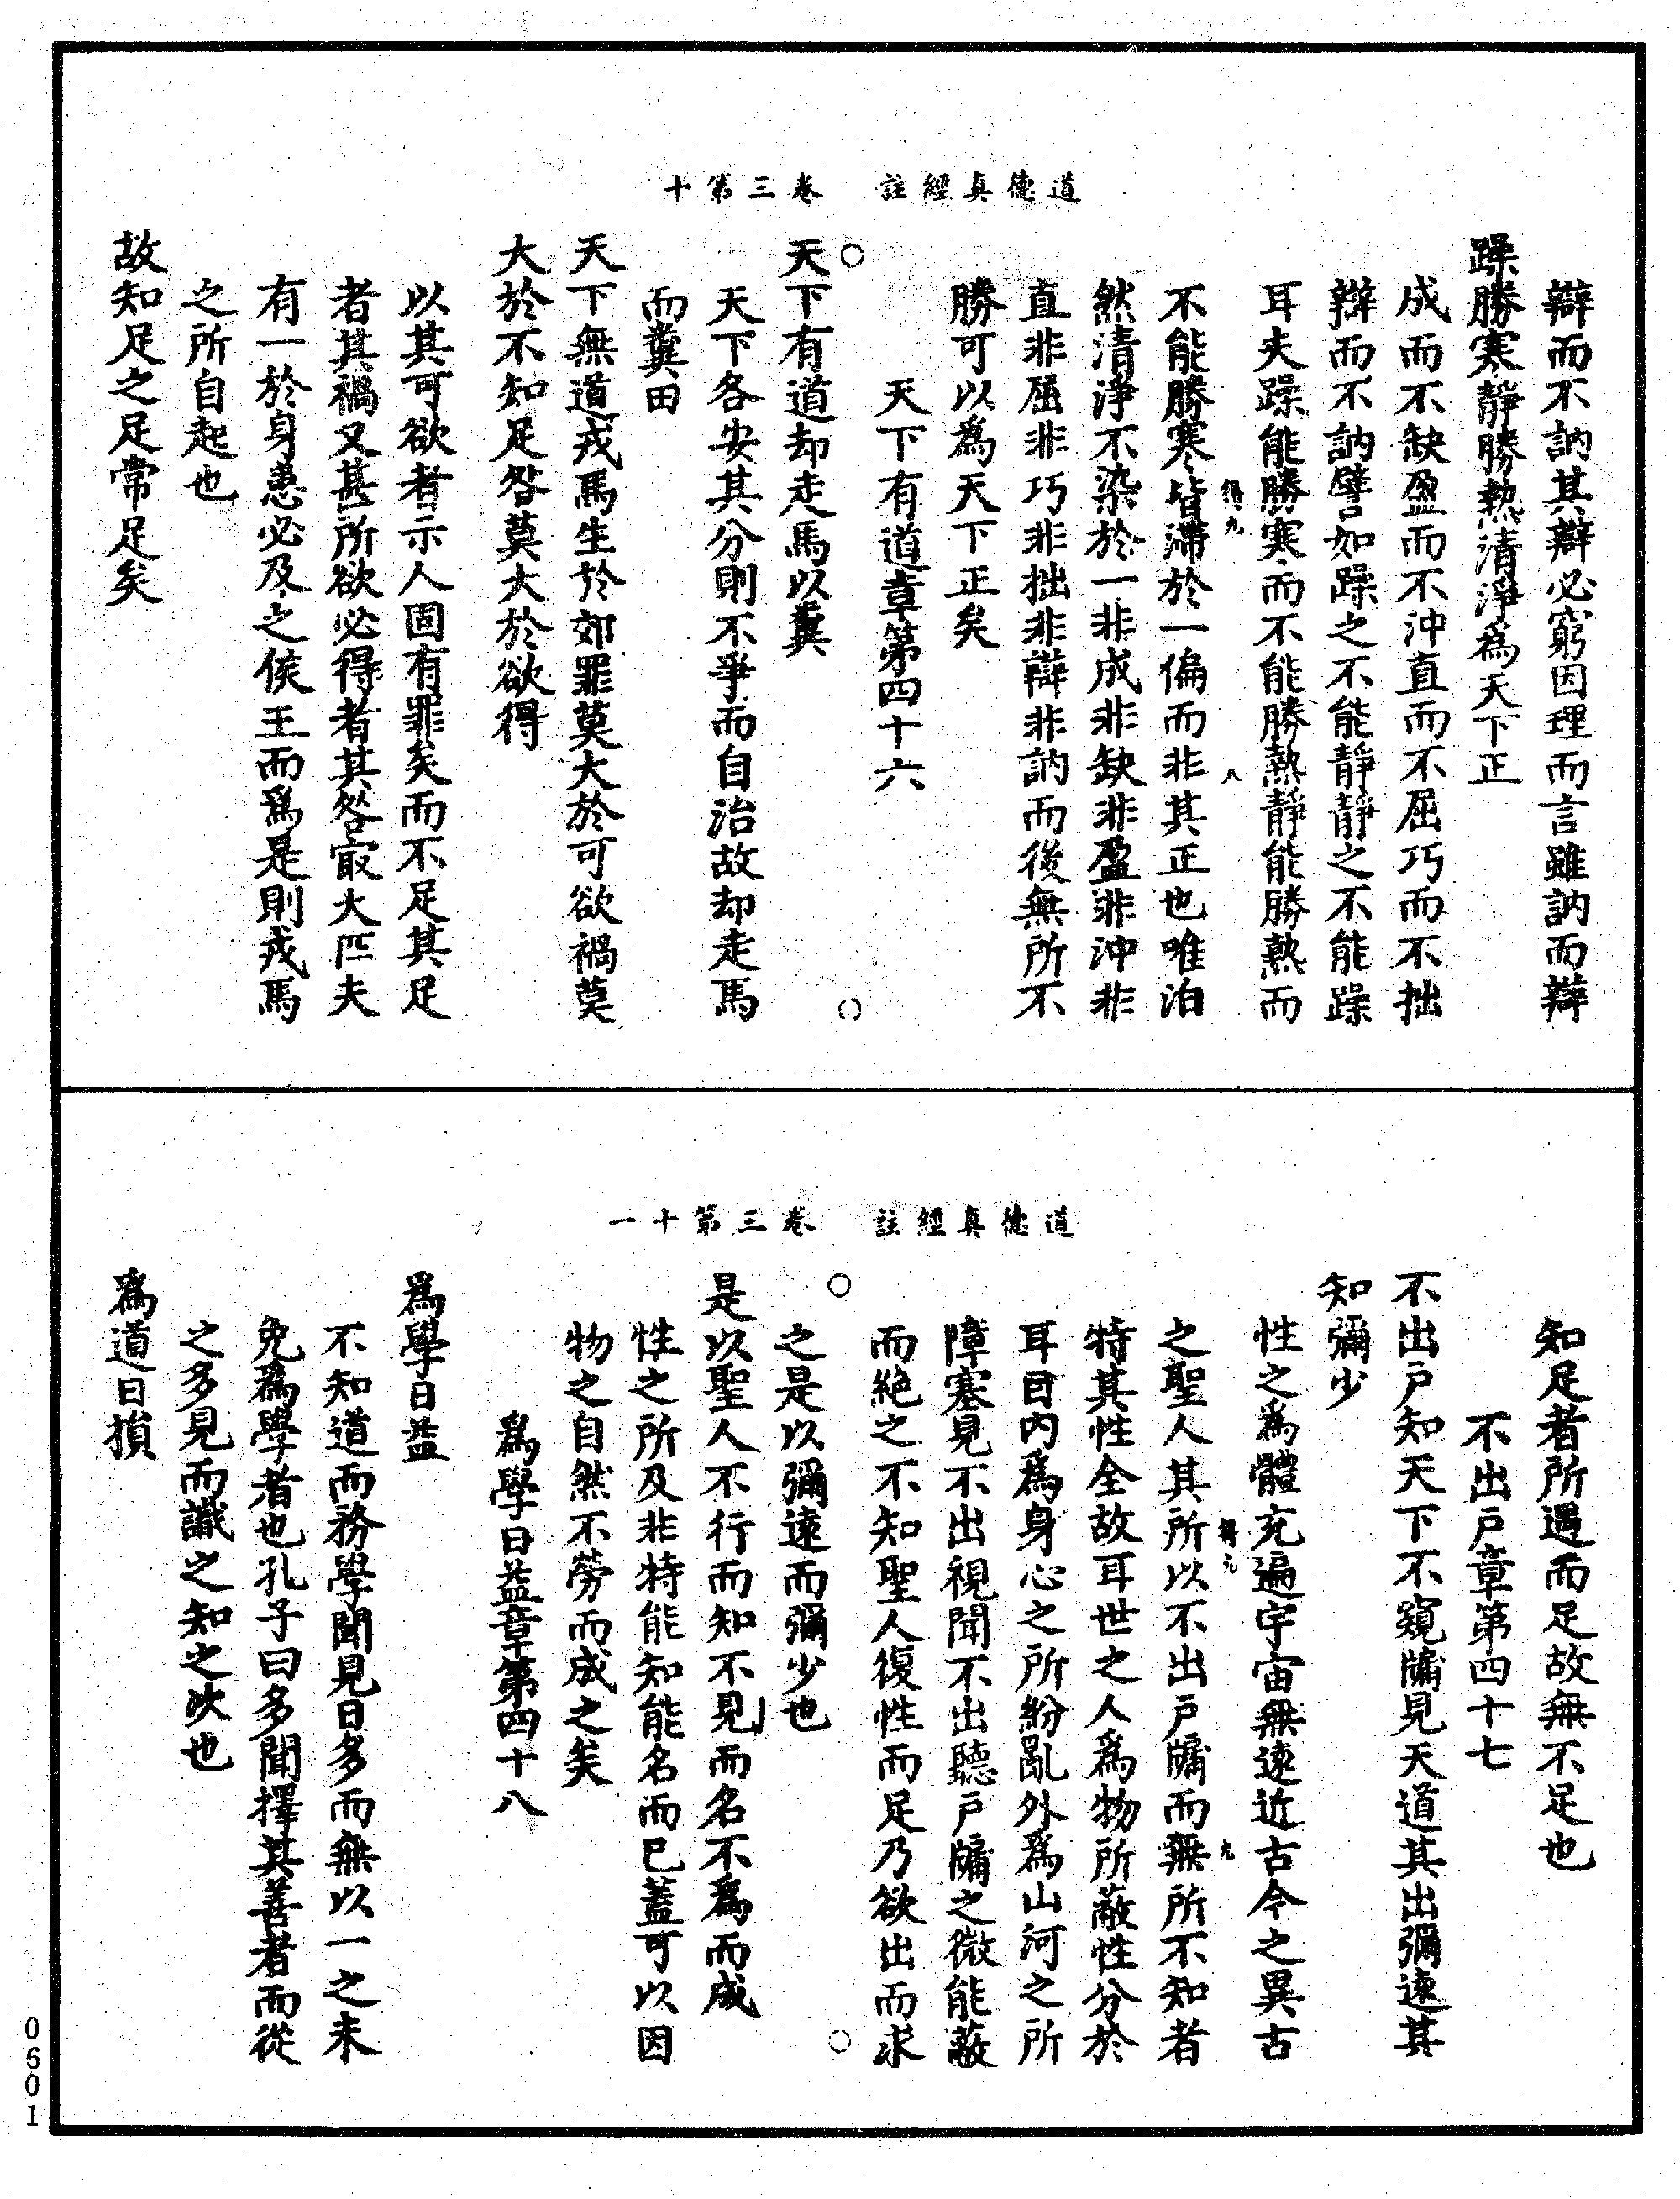 道德真經註　卷三第十
辯而不訥其辯必窮因理而言雖訥而辯
躁勝寒靜勝熱清淨為天下正
成而不缺盈而不沖直而不屈巧而不拙
辯而不訥譬如躁之不能靜靜之不能躁
耳夫躁能勝寒而不能勝熱靜能勝熱而
不能勝寒皆滯於一偏而非其正也唯泊
然清淨不染於一非成非缺非盈非沖非
直非屈非巧非拙非辯非訥而後無所不
勝可以為天下正矣
天下有道章第四十六
天下有道却走馬以糞
天下各安其分則不爭而自治故却走馬
而糞田
天下無道戎馬生於郊罪莫大於可欲禍莫
大於不知足咎莫大於欲得
以其可欲者示人固有罪矣而不足其足
者其禍又甚所欲必得者其咎㝡大匹夫
有一於身患必及之侯王而爲是則戎馬
之所自起也
故知足之足常足矣
道德真經註　卷三第十一
知足者所遇而足故無不足也
不出戶章第四十七
不出戶知天下不窺牖見天道其出彌遠其
知彌少
性之為體充遍宇宙無遠近古今之異古
之聖人其所以不出戶牖而無所不知者
特其性全故耳世之人爲物所蔽性分於
耳目內為身心之所紛亂外爲山河之所
障塞見不出視聞不出聽戶牖之微能蔽
而絕之不知聖人復性而足乃欲出而求
之是以彌遠而彌少也
是以聖人不行而知不見而名不爲而成
性之所及非特能知能名而已蓋可以因
物之自然不勞而成之矣
爲學日益章第四十八
爲學日益
不知道而務學聞見日多而無以一之未
免爲學者也孔子曰多聞擇其善者而從
之多見而識之知之次也
爲道日損
0601